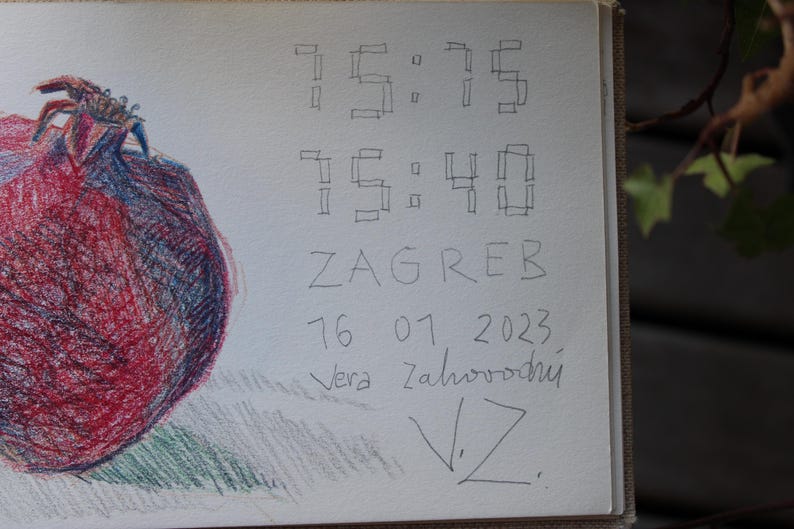 15:15
15:40
ZAGREB
16 01 2023
Vera
V.Z.